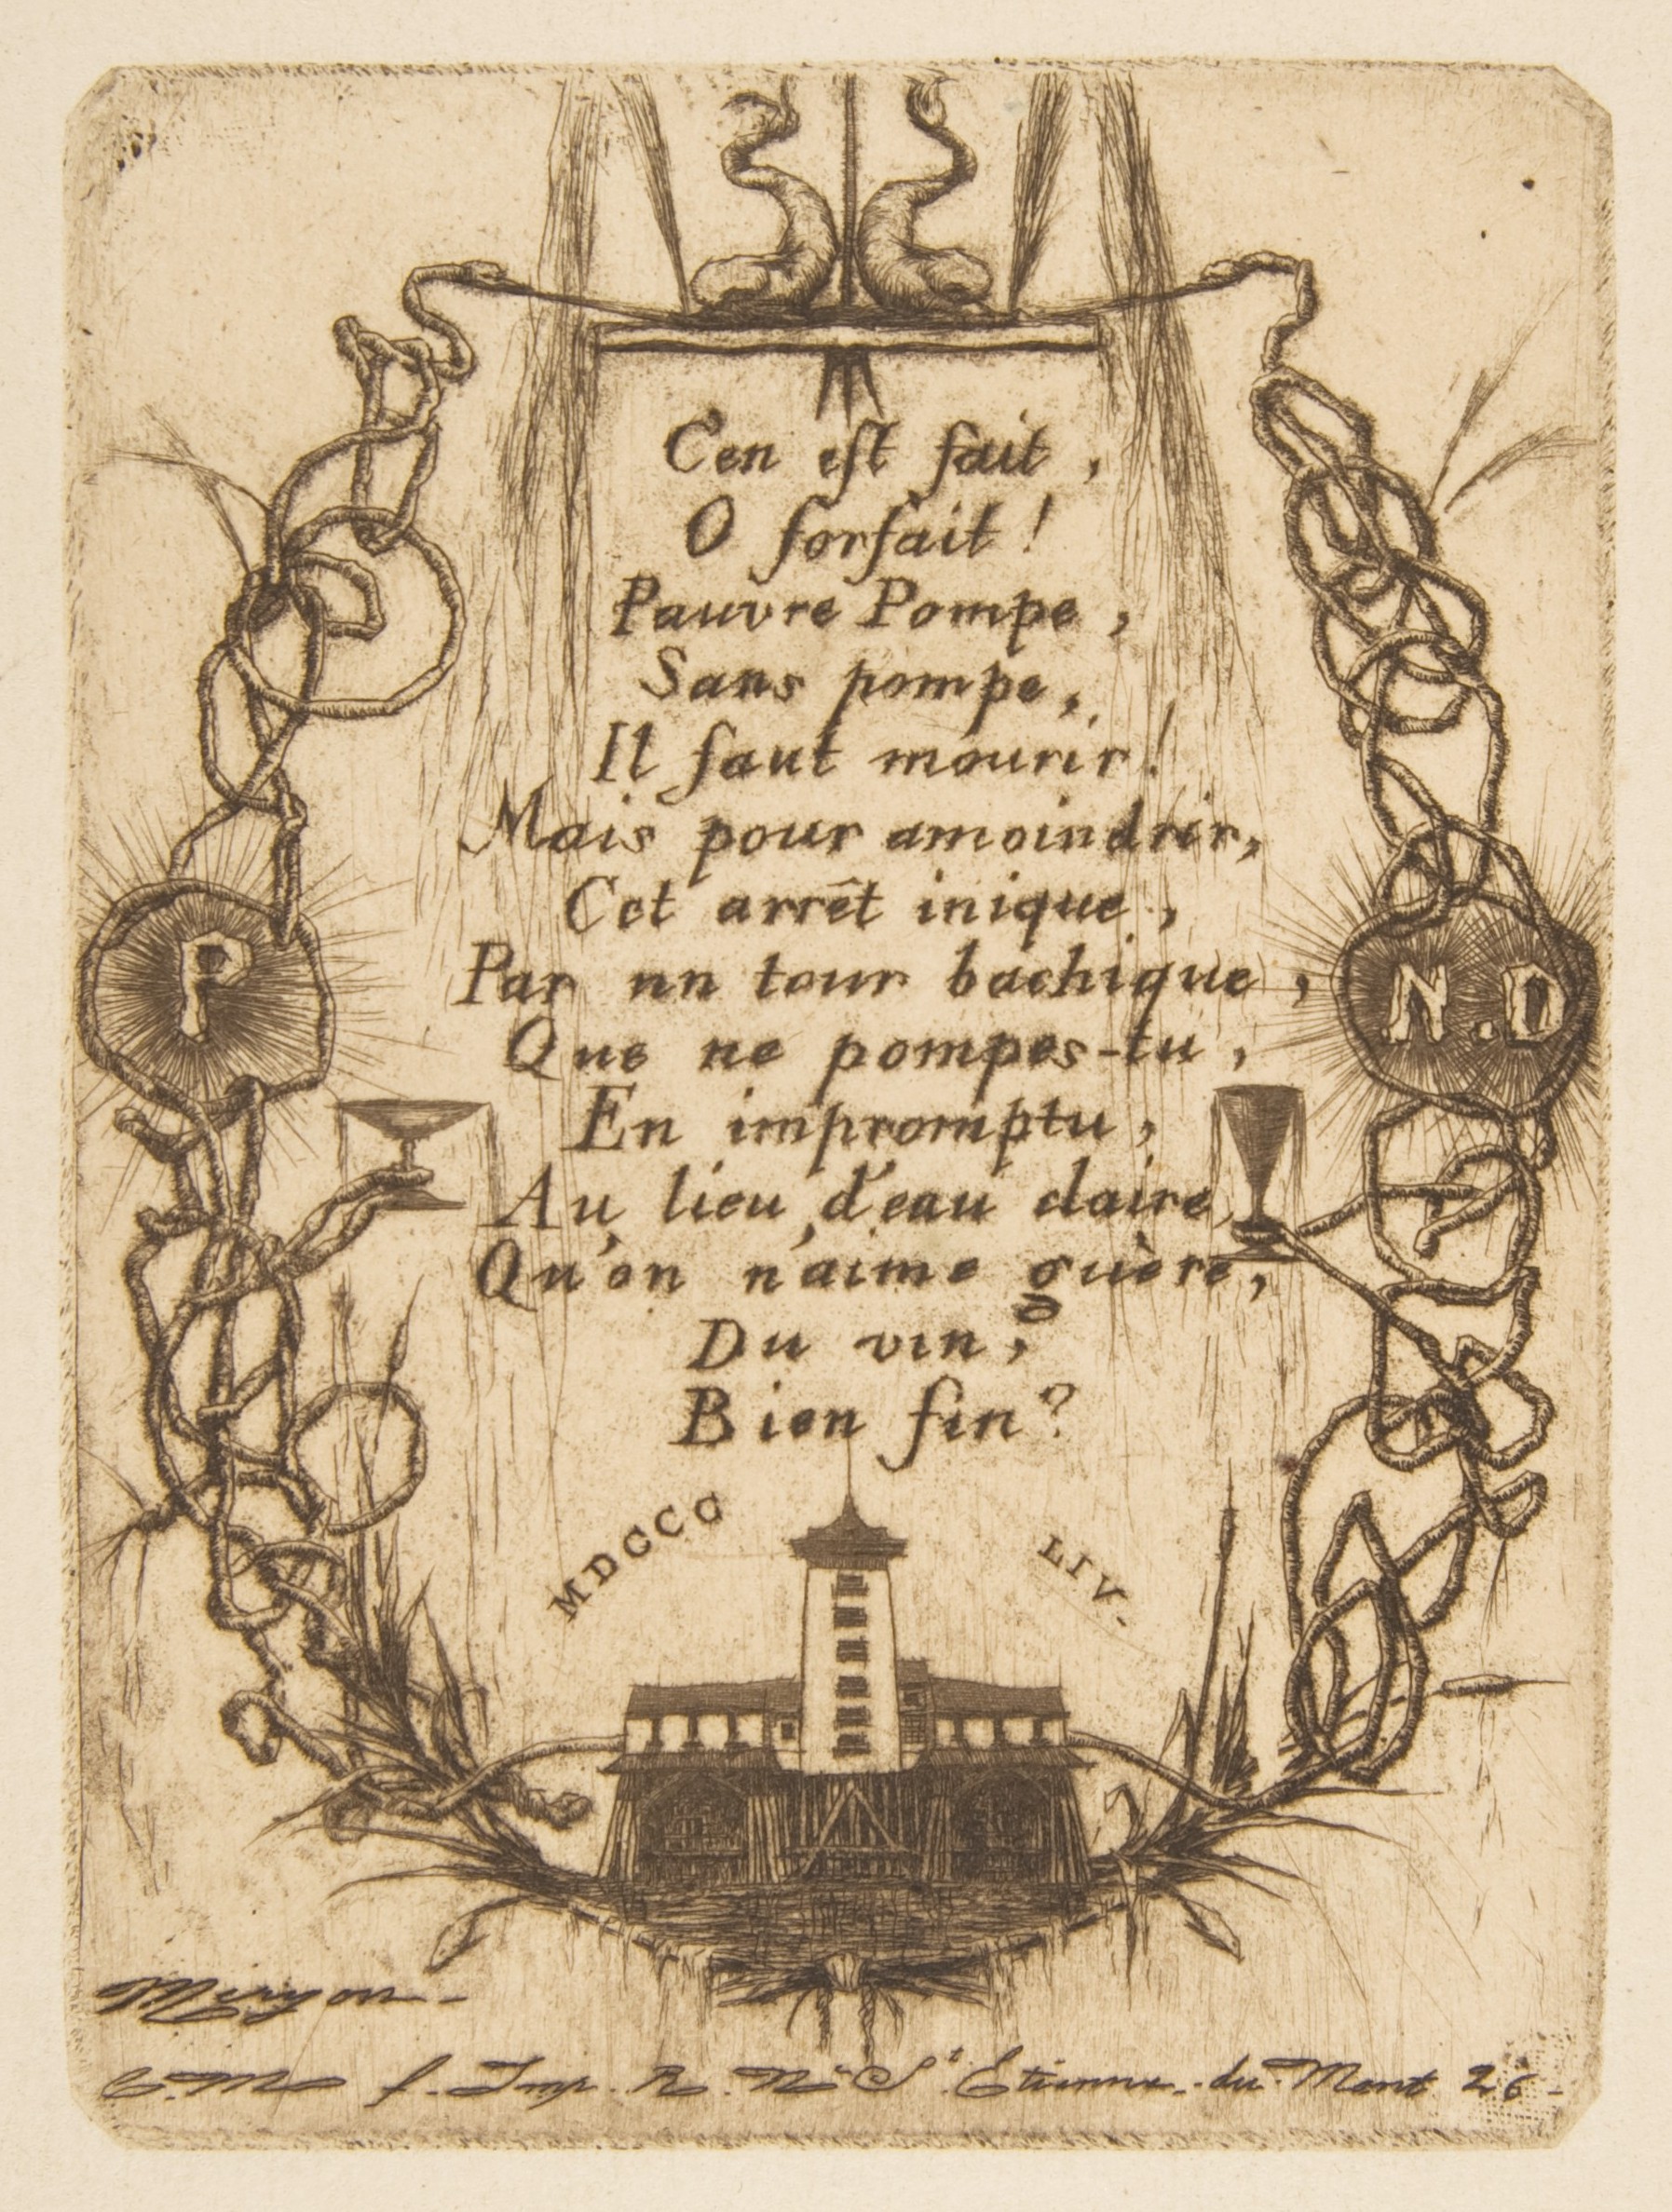 C'en est fait,
O forfait!
Pauvre Pompe,
Sans pompe,
Il faut mourir!
Mais pour amoindrir,
Cet arrêt inique,
Par un tour bachique,
Que ne pompes-tu,
En impromptu,
Au lieu d'eau claire,
Qu'on n'aime guère,
Du vin,
Bien fin?
P
N.D
MDCCC LIV-
Meryon-
C.M f. Imp. R. Nve St. Etienne-du-Mont 26-